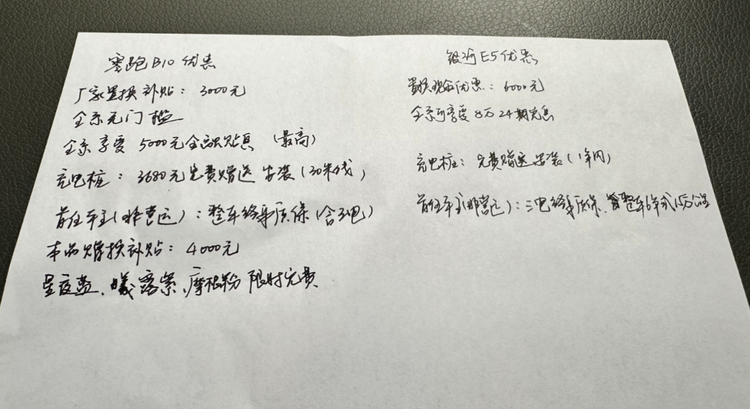 零跑B10优惠
厂家置换补贴：3000元
全系无门槛
全系享受5000元金融贴息（最高）
充电桩：3680元免费赠送安装（30米线）
首任车主(非营运)：整车终身质保（含三电）
本品增换补贴：4000元
星夜蓝、曦雾紫、摩根粉限时免费
银河E5优惠
置换现金优惠：6000元
全系可享受8万24期免息
充电桩：免费赠送安装（1年内）
首任车主(非营运)：三电终身质保、整车6年或15万公里